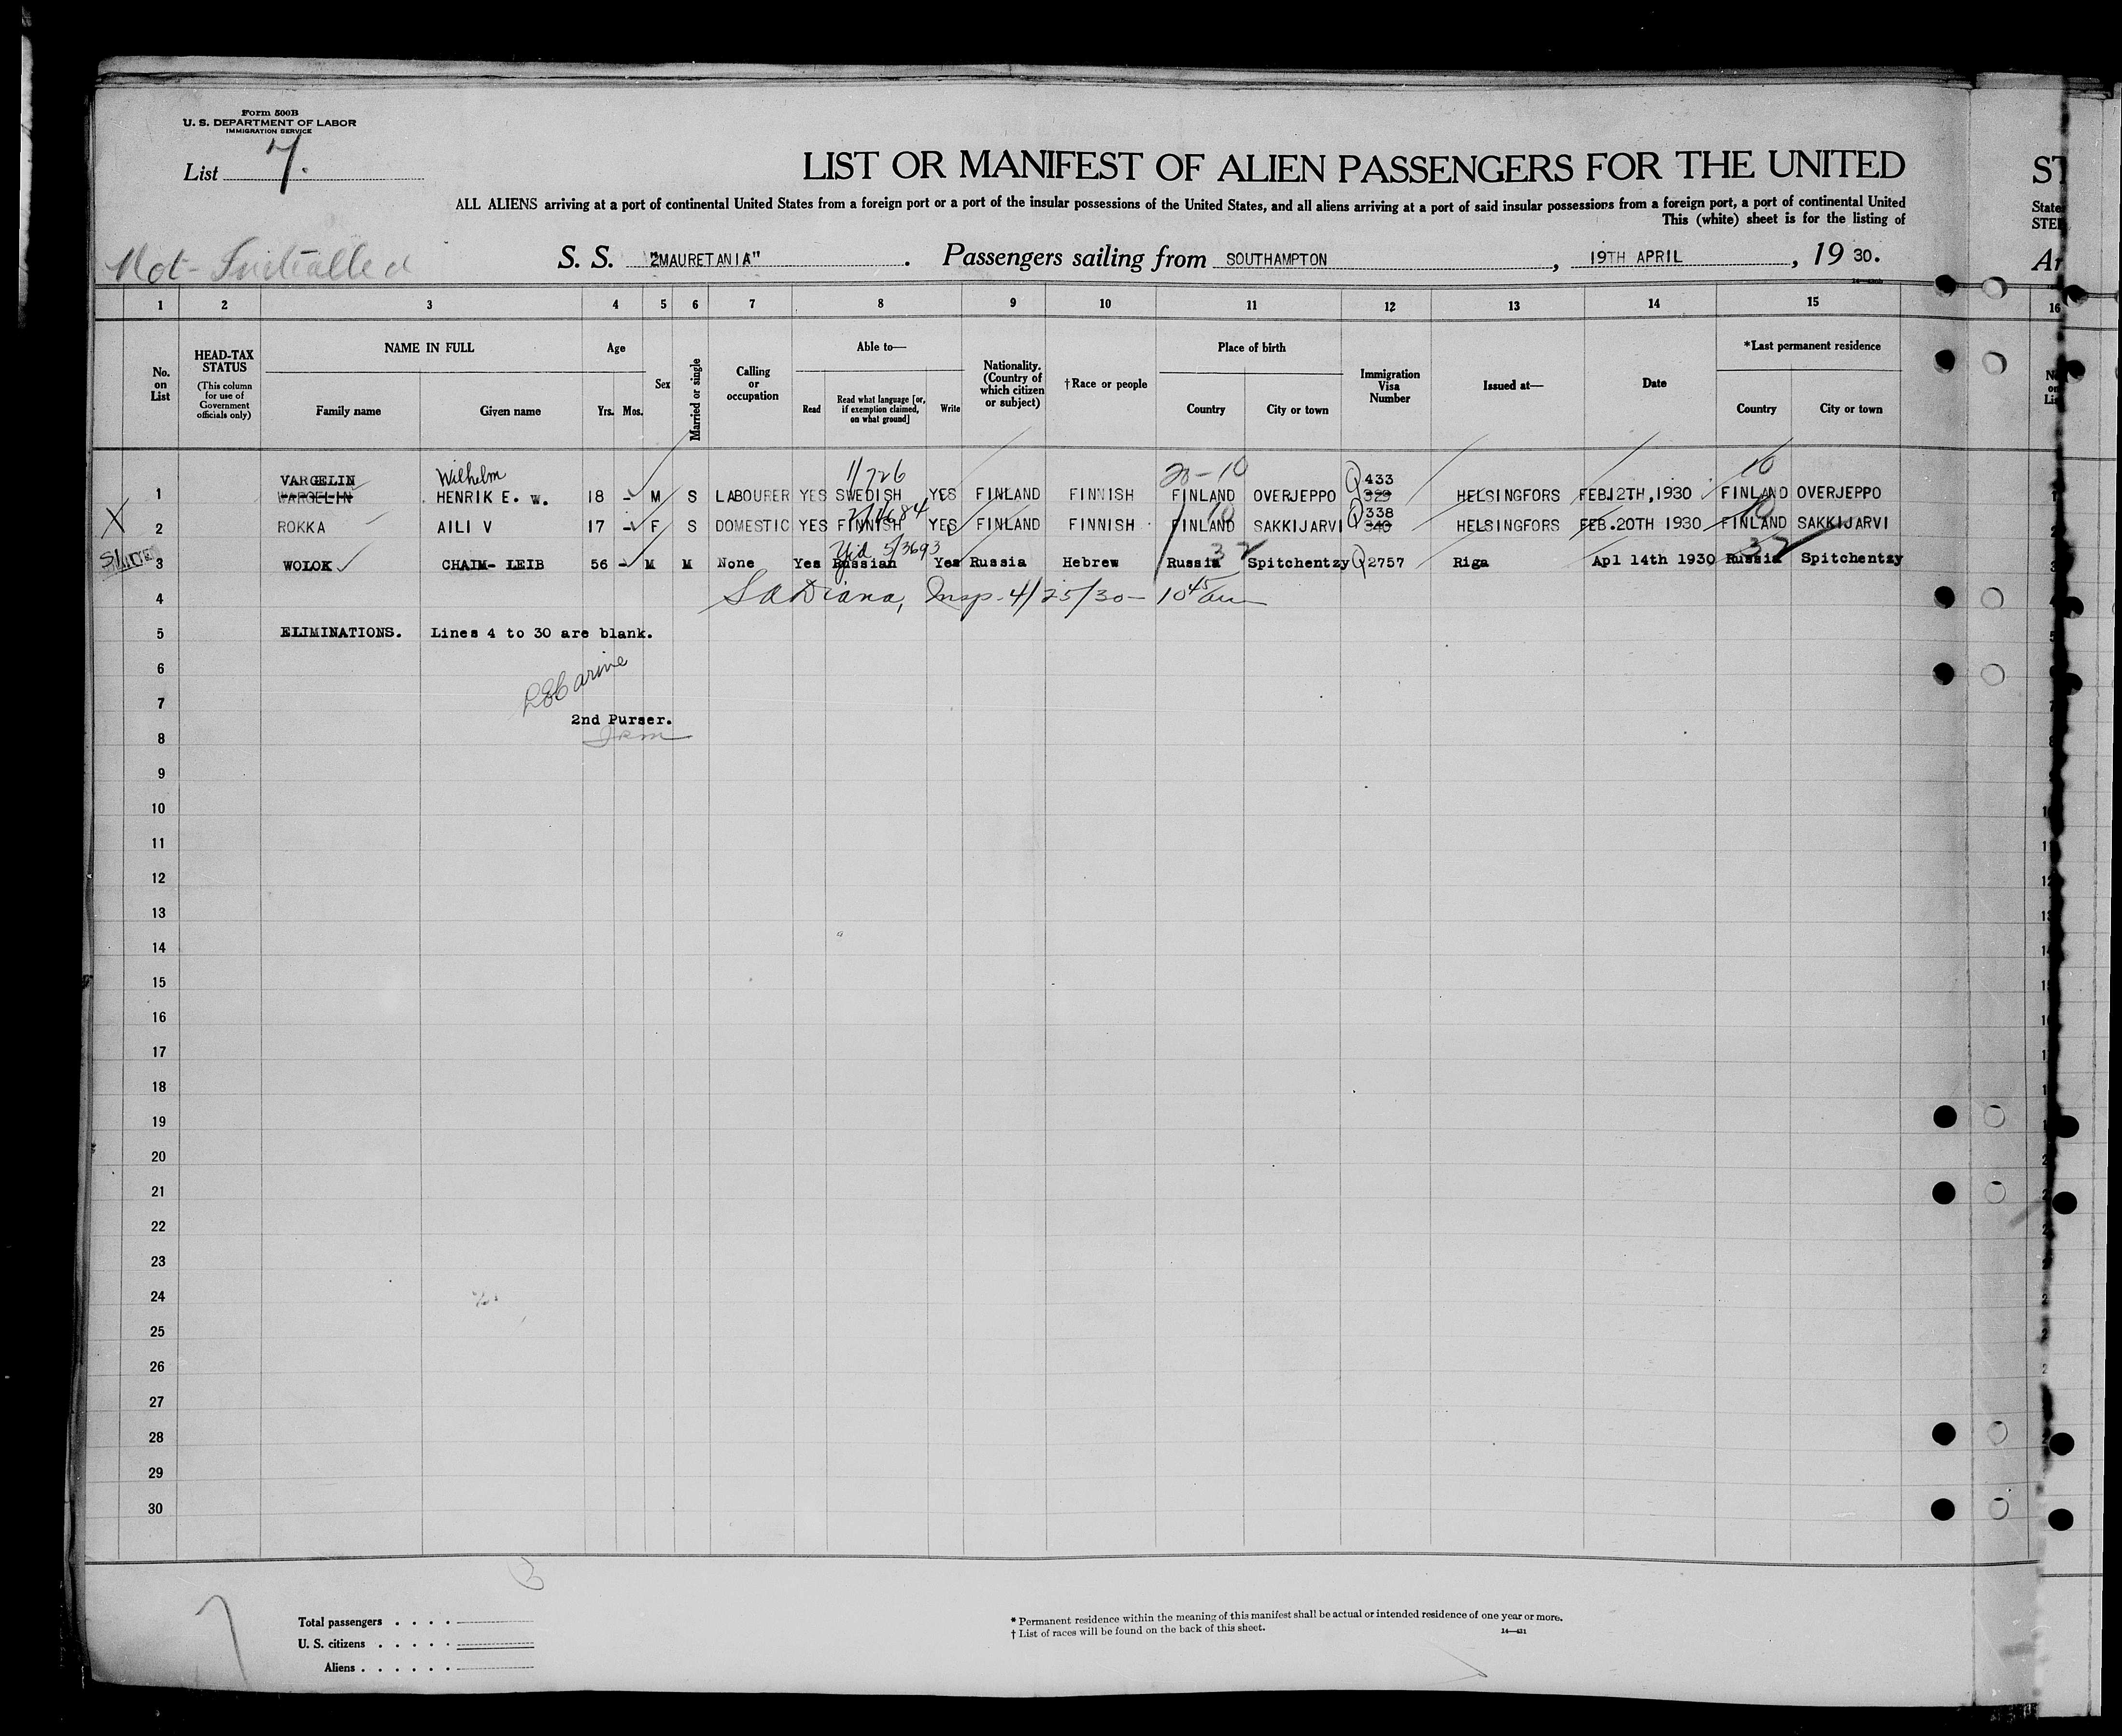 Form 500B
U. S. DEPARTMENT OF LABOR
IMMIGRATION SERVICE
List 7.
LIST OR MANIFEST OF ALIEN PASSENGERS FOR THE UNITED
ST
ALL ALIENS arriving at a port of continental United States from a foreign port or a port of the insular possessions of the United States, and all aliens arriving at a port of said insular possessions from a foreign port, a port of continental United
State
This (white) sheet is for the listing of
STE
Not-Initialled
S. S. "MAURETANIA". Passengers sailing from SOUTHAMPTON, 19TH APRIL, 19 30.
Ar
1 2 3 4 5 6 7 8 9 10 11 12 13 14 15 16
No. on List
HEAD-TAX STATUS (This column for use of Government officials only)
NAME IN FULL
Family name Given name
Age
Yrs. Mos.
Sex
Married or single
Calling or occupation
Able to—
Read
Read what language [or, if exemption claimed, on what ground]
Write
Nationality. (Country of which citizen or subject)
†Race or people
Place of birth
Country City or town
Immigration Visa Number
Issued at—
Date
*Last permanent residence
Country City or town
VARGELIN Wilhelm 1/726 20-10 Q 433 10
1 WARGELIN HENRIK E. W. 18 - M S LABOURER YES SWEDISH YES FINLAND FINNISH FINLAND OVERJEPPO 329 HELSINGFORS FEB.12TH,1930 FINLAND OVERJEPPO
10 Q 338 10
X 2 ROKKA AILI V 17 - F S DOMESTIC YES FINNISH YES FINLAND FINNISH FINLAND SAKKIJARVI 340 HELSINGFORS FEB.20TH 1930 FINLAND SAKKIJARVI
Yid 5/3693 32 32
3 WOLOK CHAIM- LEIB 56 - M M None Yes Russian Yes Russia Hebrew Russia Spitchentzy Q 2757 Riga Apl 14th 1930 Russia Spitchentzy
4 SA Diana, Insp. 4/25/30- 10 45 am
5 ELIMINATIONS. Lines 4 to 30 are blank.
6
7
2nd Purser.
8
9
10
11
12
13
14
15
16
17
18
19
20
21
22
23
24
25
26
27
28
29
30
7
Total passengers . . . .
U. S. citizens . . . . .
Aliens . . . . . .
* Permanent residence within the meaning of this manifest shall be actual or intended residence of one year or more.
† List of races will be found on the back of this sheet.
14—431